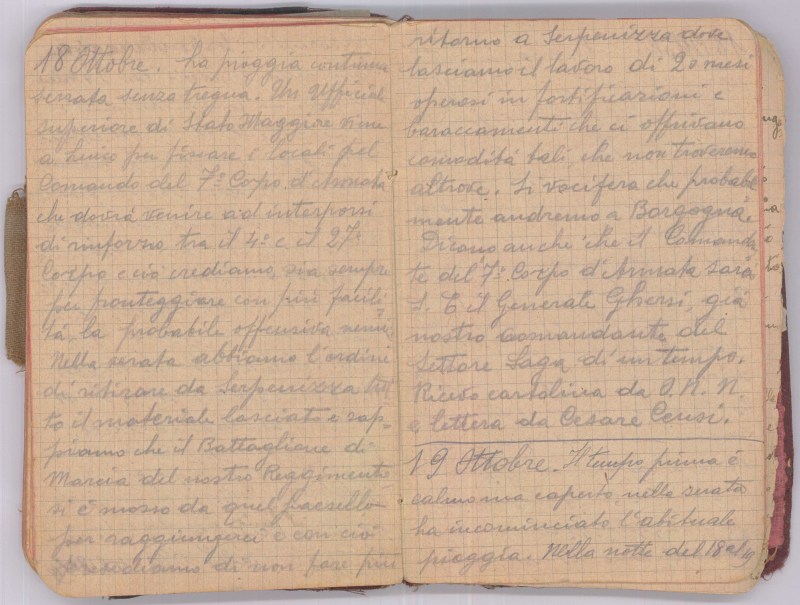 18 Ottobre. La pioggia continua
serrata senza tregua. Un Ufficiale
superiore di Stato Maggiore viene
a Luico per fissare i locali pel
Comando del 7º Corpo d'Armata
che dovrà venire ad interporsi
di rinforzo tra il 4º e il 27º
Corpo e ciò crediamo, sia sempre
per fronteggiare con più facili=
tà, la probabile offensiva nemica.
Nella serata abbiamo l'ordine
di ritirare da Serpenizza tut=
to il materiale lasciato e sap=
piamo che il Battaglione di
Marcia del nostro Reggimento
si è mosso da quel paesello
per raggiungerci e con ciò
prevediamo di non fare più
ritorno a Serpenizza dove
lasciamo il lavoro di 20 mesi
operosi in fortificazioni e
baraccamenti che ci offrivano
comodità tali che non troveremo
altrove. Si vocifera che probabil
mente andremo a Borgogna.
Dicono anche che il Comandan
te del 7º Corpo d'Armata sarà
S. E il Generale Ghersi, già
nostro comandante del
Settore Saga di un tempo.
Ricevo cartolina da I. N. N.
e lettera da Cesare Censi.
19 Ottobre. Il tempo prima è
calmo ma coperto, nella serata
ha incominciato l'abituale
pioggia. Nella notte del 18 al 19